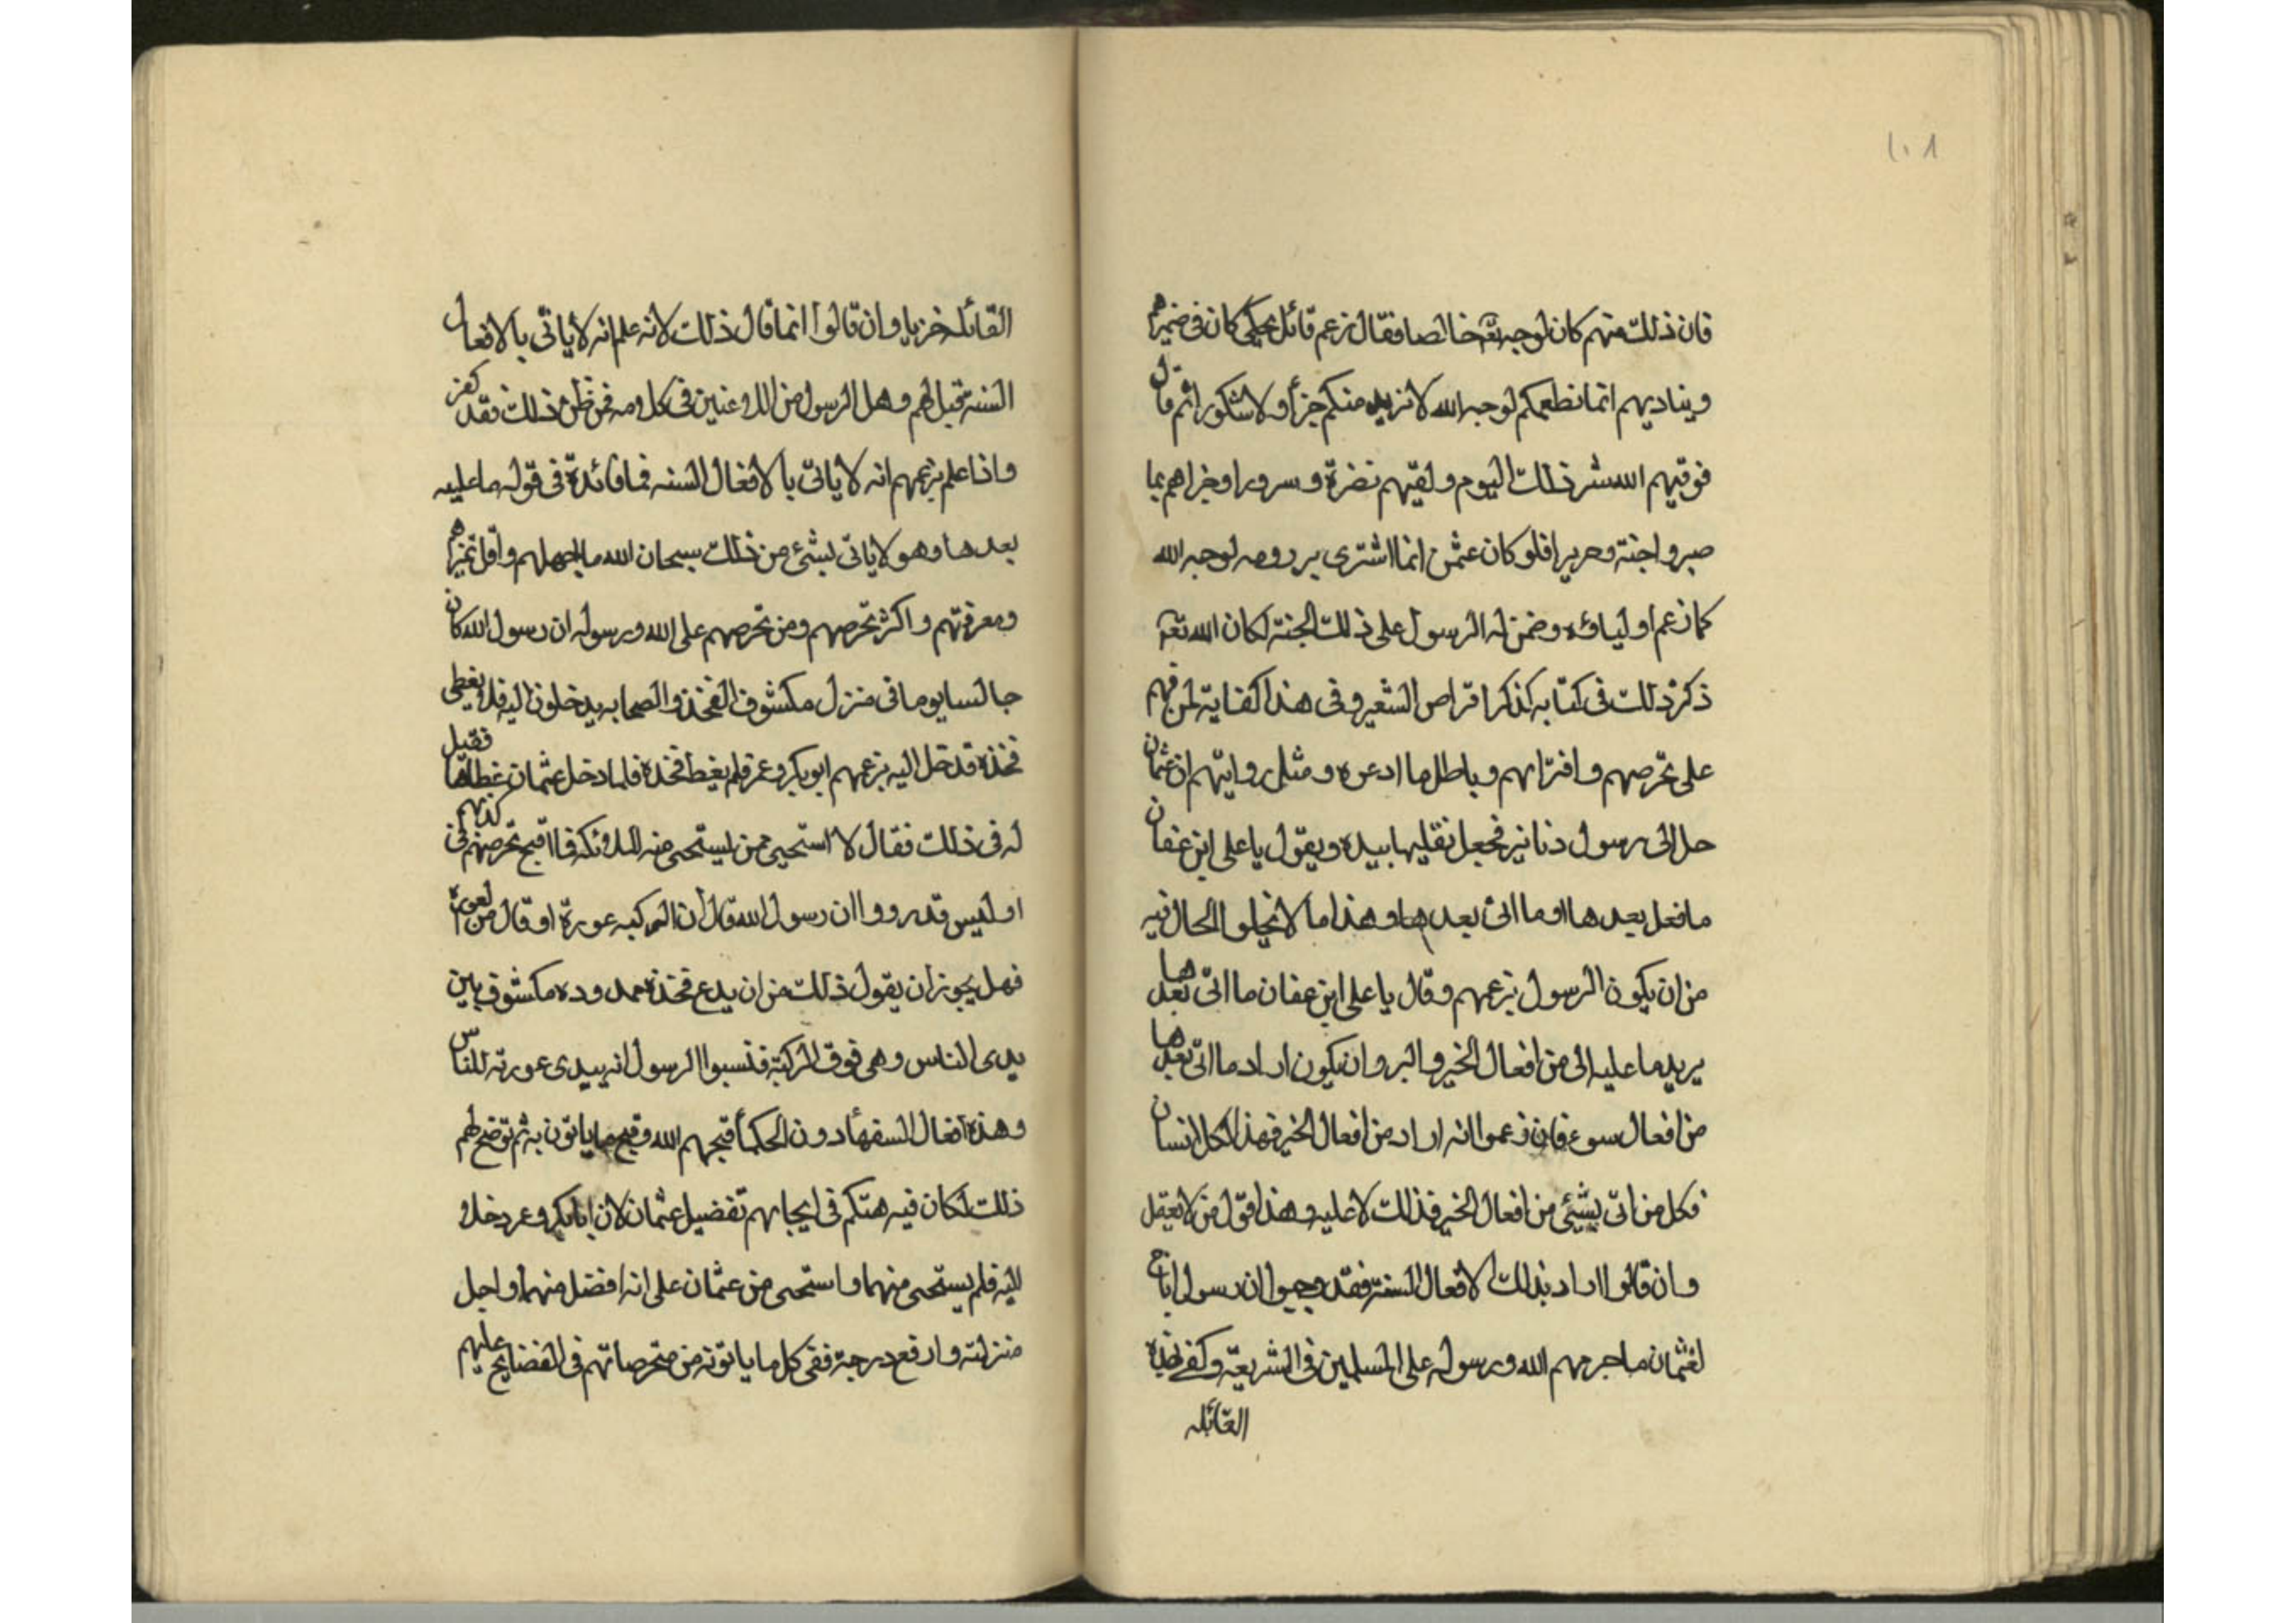 ١٠١
فان ذلك منهم كان لوجه الله تعالى خالصا فقال زعم قائل يحكى كان فى ضميرهم
ويناديهم انما نطعمكم لوجه الله لا نريد منكم جزأ ولا شكورا ثم قال
فوقيهم الله شر ذلك اليوم ولقيهم نضرة وسرورا وجزاهم بما
صبروا جنة وحريرا فلو كان عثمن انما اشترى بير رومه لوجه الله
كما زعم اولياؤه وضمن له الرسول على ذلك الجنة لكان الله تعه
ذكر ذلك فى كتابه كذكر اقراص الشعير وفى هذا كفاية لمن فهم
على تخرصهم وافترائهم وباطل ما ادعوه ومثل روايتهم ان عثمان
حمل الى رسول دنانير فجعل نقليها بيده ويقول يا على ابن عفان
ما فعل بعدها او ما اتى بعدها وهذا ما لا يخلوا الحال فيه
من ان يكون الرسول بزعمهم وقال يا على ابن عفان ما اتى بعدها
يريد ما عليه الى من افعال الخير والبر وان يكون اراد ما اتى بعدها
من افعال سوء فان زعموا انه اراد من افعال الخير فهذا لكل انسان
فكل من اتى بشئى من افعال الخير فذلك لا عليه وهذا قول من لا يعقل
وان قالوا اراد بذلك الافعال السنة فقد وجبوا ان رسول اباح
لعثمان ما حرمهم الله ورسوله على المسلمين فى الشريعة وكفى بهذه
القائله
القائله خزيا وان قالوا انما قال ذلك لانه علم انه لا ياتى بالافعال
السنه قيل لهم وهل الرسول من اللاعنين فى كلومه فمن ظن ذلك فقد كفر
واذا علم بزعمهم انه لا ياتى بالافعال السنه فما فائدة فى قوله ما عليه
بعدها وهو لا ياتى بشئ من ذلك سبحان الله ما اجهلهم واقل تميزهم
ومعرفتهم واكثر تخرصهم ومن تخرصهم على الله ورسوله ان رسول الله كان
جالسا يوما فى منزل مكشوف الفخذ والصحابه يدخلون اليه فلا يغطى
فخذه قد خل اليه بزعمهم ابوبكر وعمر فلم يغط فخذه فلما دخل عثمان غطاها فقيل
له فى ذلك فقال لا استحيى ممن ليستحى منه الملائكه فما اقبح تخرصهم فى كذبهم
اوليس قد رووا ان رسول الله قال ان الركبه عورة او قال من العورة
فهل يجوز ان يقول ذلك من ان يدع فخذه ممدوده مكشوف بين
يدى الناس وهى فوق الركبة فنسبوا الرسول انه يبدى عورته للناس
وهذه افعال السفهأ دون الحكمأ قبحهم الله وقبح ما ياتون به ثم توضح لهم
ذلك لكان فيه هتكم فى ايجابهم تفضيل عثمان لان ابابكر وعمر دخلو
اليه فلم يستحى منهما واستحى من عثمان على انه افضل منهما واجل
منزلته وارفع درجة ففى كل ما ياتوته من متخرصاتهم فى الفضايح عليهم